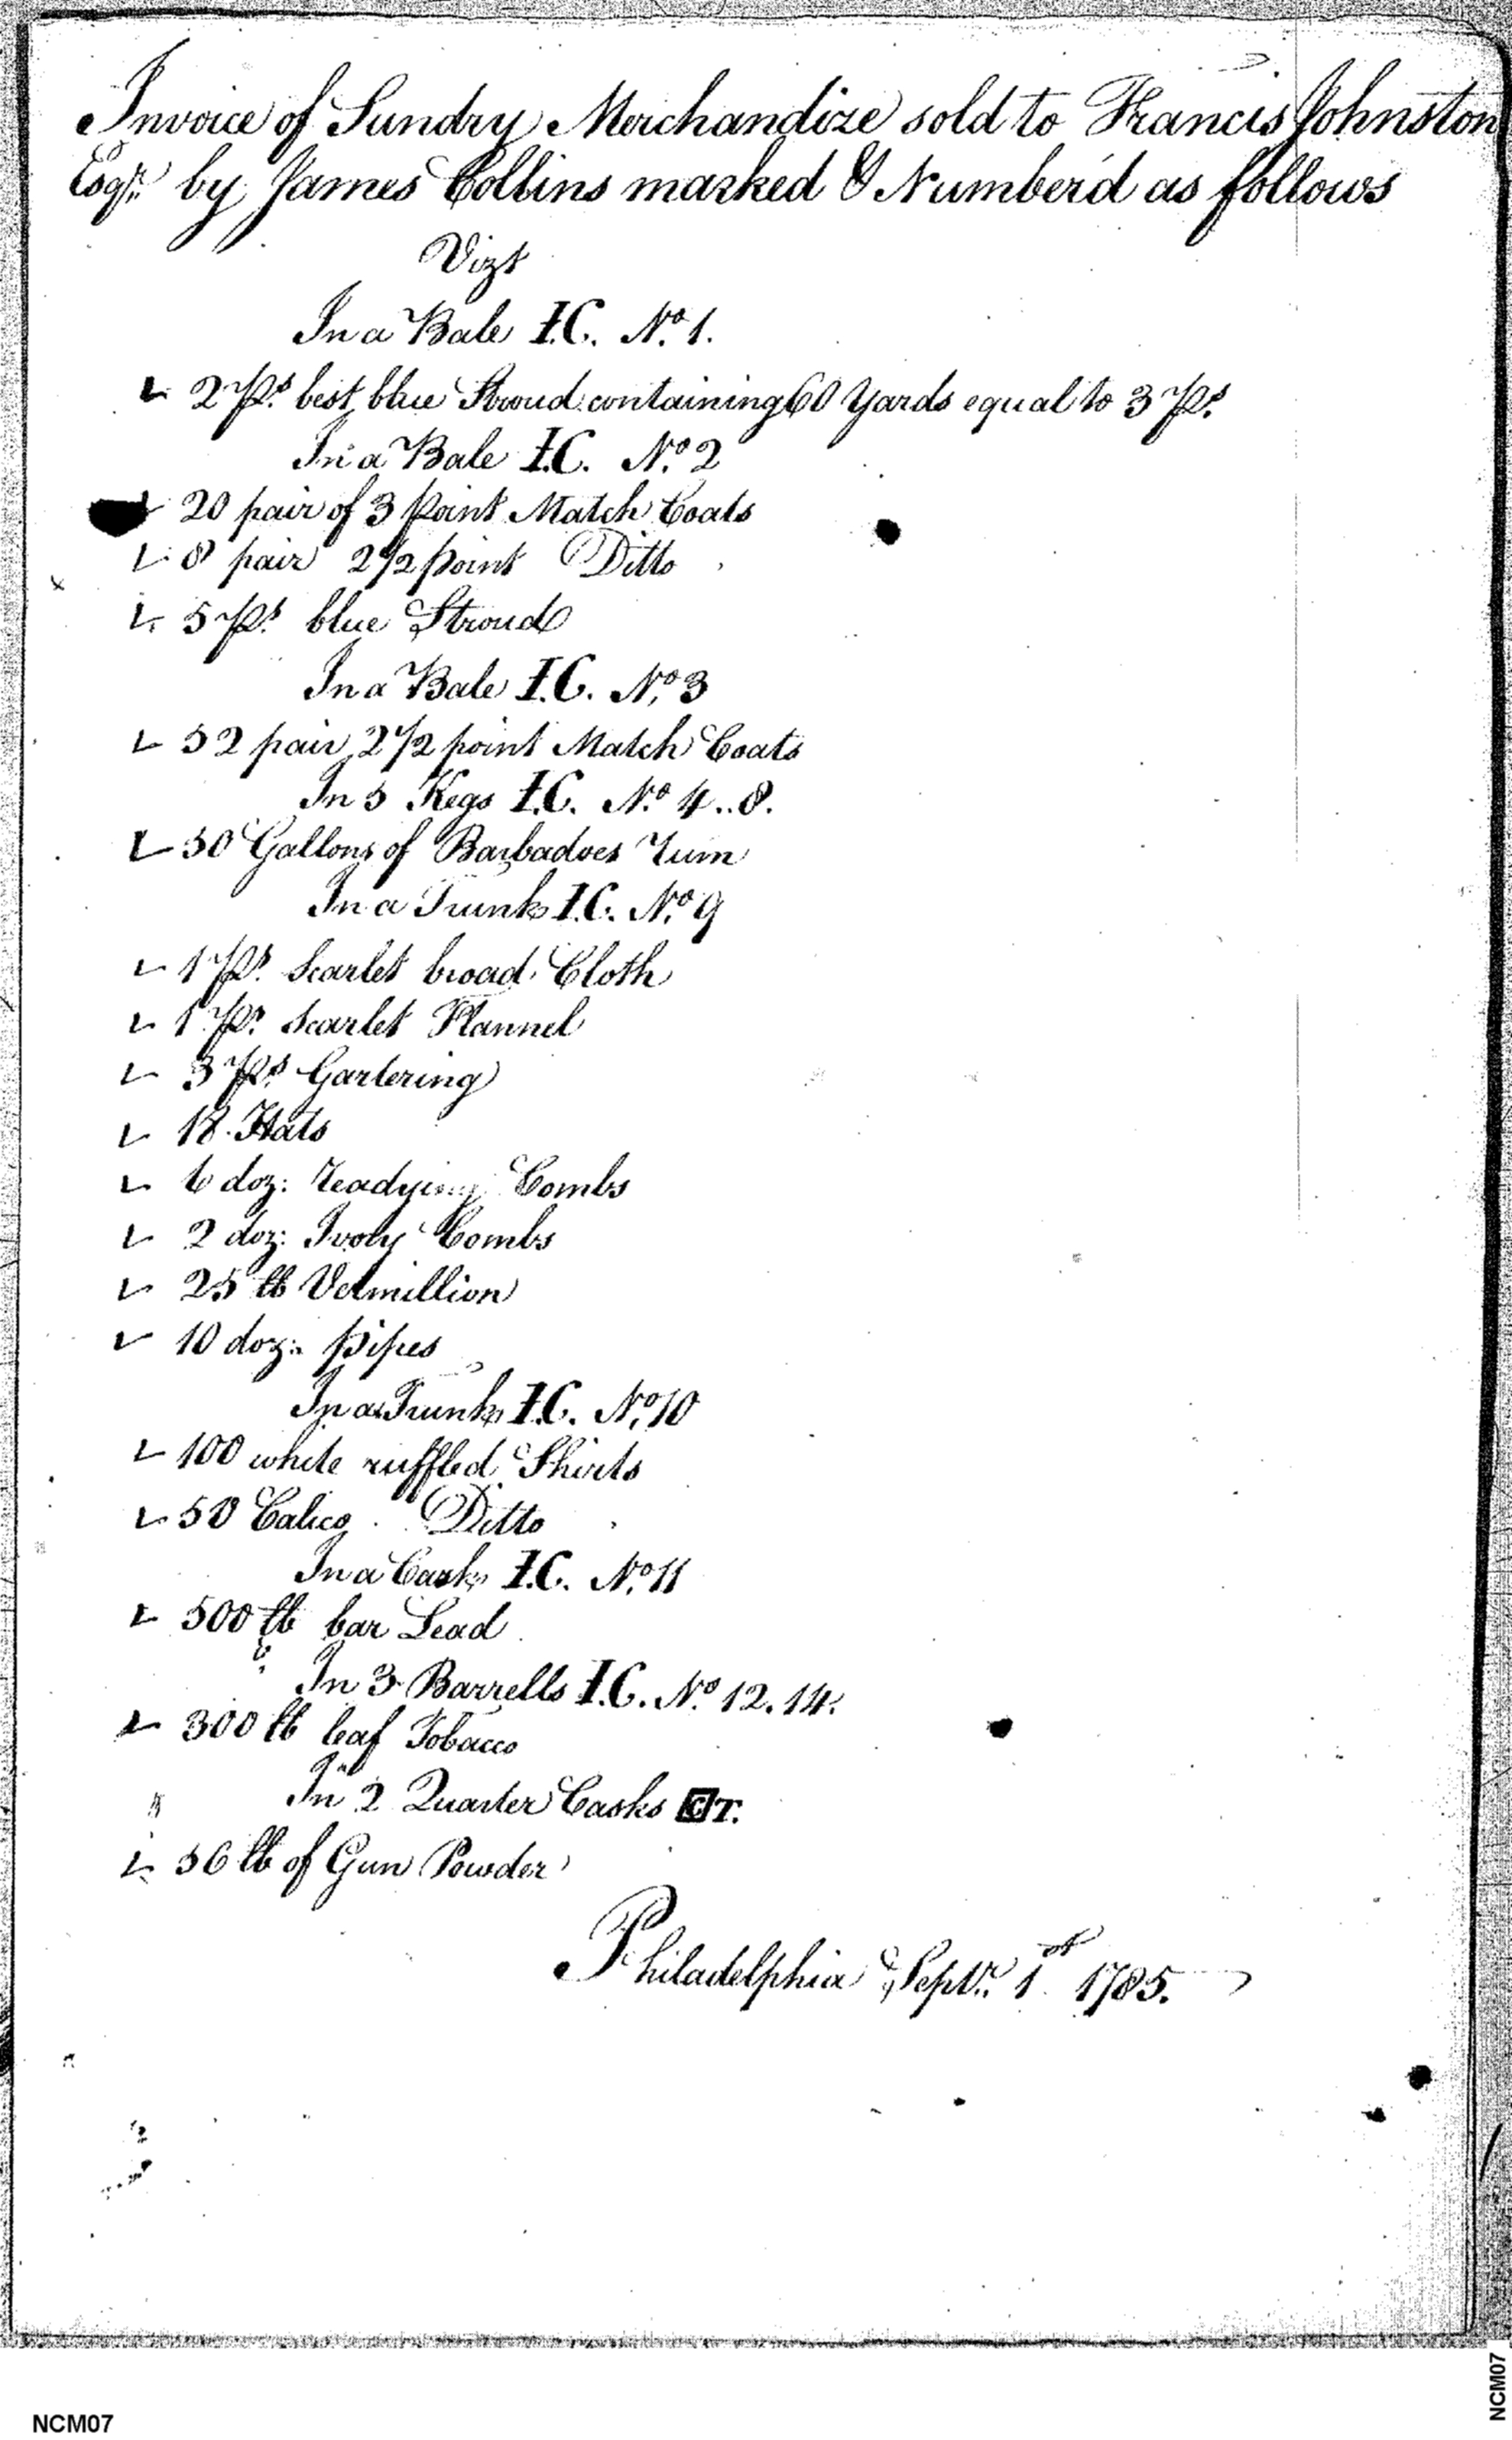 Invoice of Sundry Merchandize sold to Francis Johnston
Esqr. by James Collins marked & Number'd as follows
Vizt
In a Bale I.C. No. 1.
2 Ps. best blue Stroud containing 60 Yards equal to 3 Ps.
In a Bale I.C. No. 2
20 pair of 3 point Match Coats
8 pair 2 1/2 point Ditto
5 Ps. blue Stroud
In a Bale I.C. No. 3
52 pair 2 1/2 point Match Coats
In 5 Kegs I.C. No. 4..8.
50 Gallons of Barbadoes Rum
In a Trunk I.C. No. 9
1 Ps. Scarlet broad Cloth
1 Ps. Scarlet Flannel
3 Ps. Gartering
18 Hats
6 doz: Combs
2 doz: Ivory Combs
25 lb Vermillion
10 doz: pipes
In a Trunk I.C. No. 10
100 white ruffled Shirts
50 Calico Ditto
In a Cask I.C. No. 11
500 lb bar Lead
In 3 Barrells I.C. No. 12. 14.
300 lb leaf Tobacco
In 2 Quarter Casks C T.
56 lb of Gun Powder
Philadelphia Septr. 1st 1785.
NCM07
NCM07